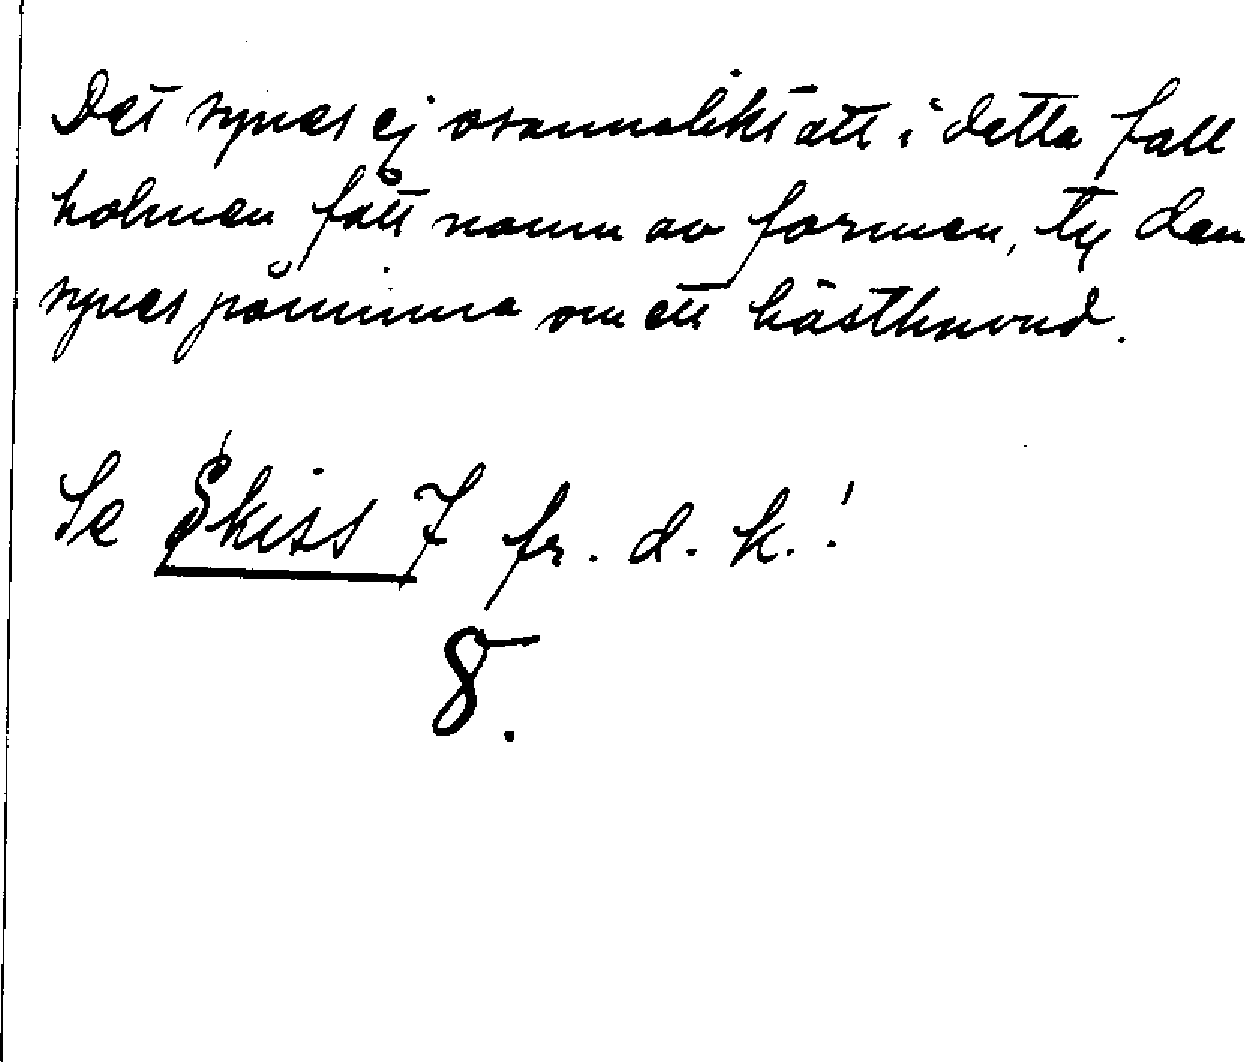 Det synes ej osannolikt att i detta fall
holmen fått namn av formen, ty den
synes påminna om ett hästhuvud.
Se Skiss 7 fr. d. k.!
8.